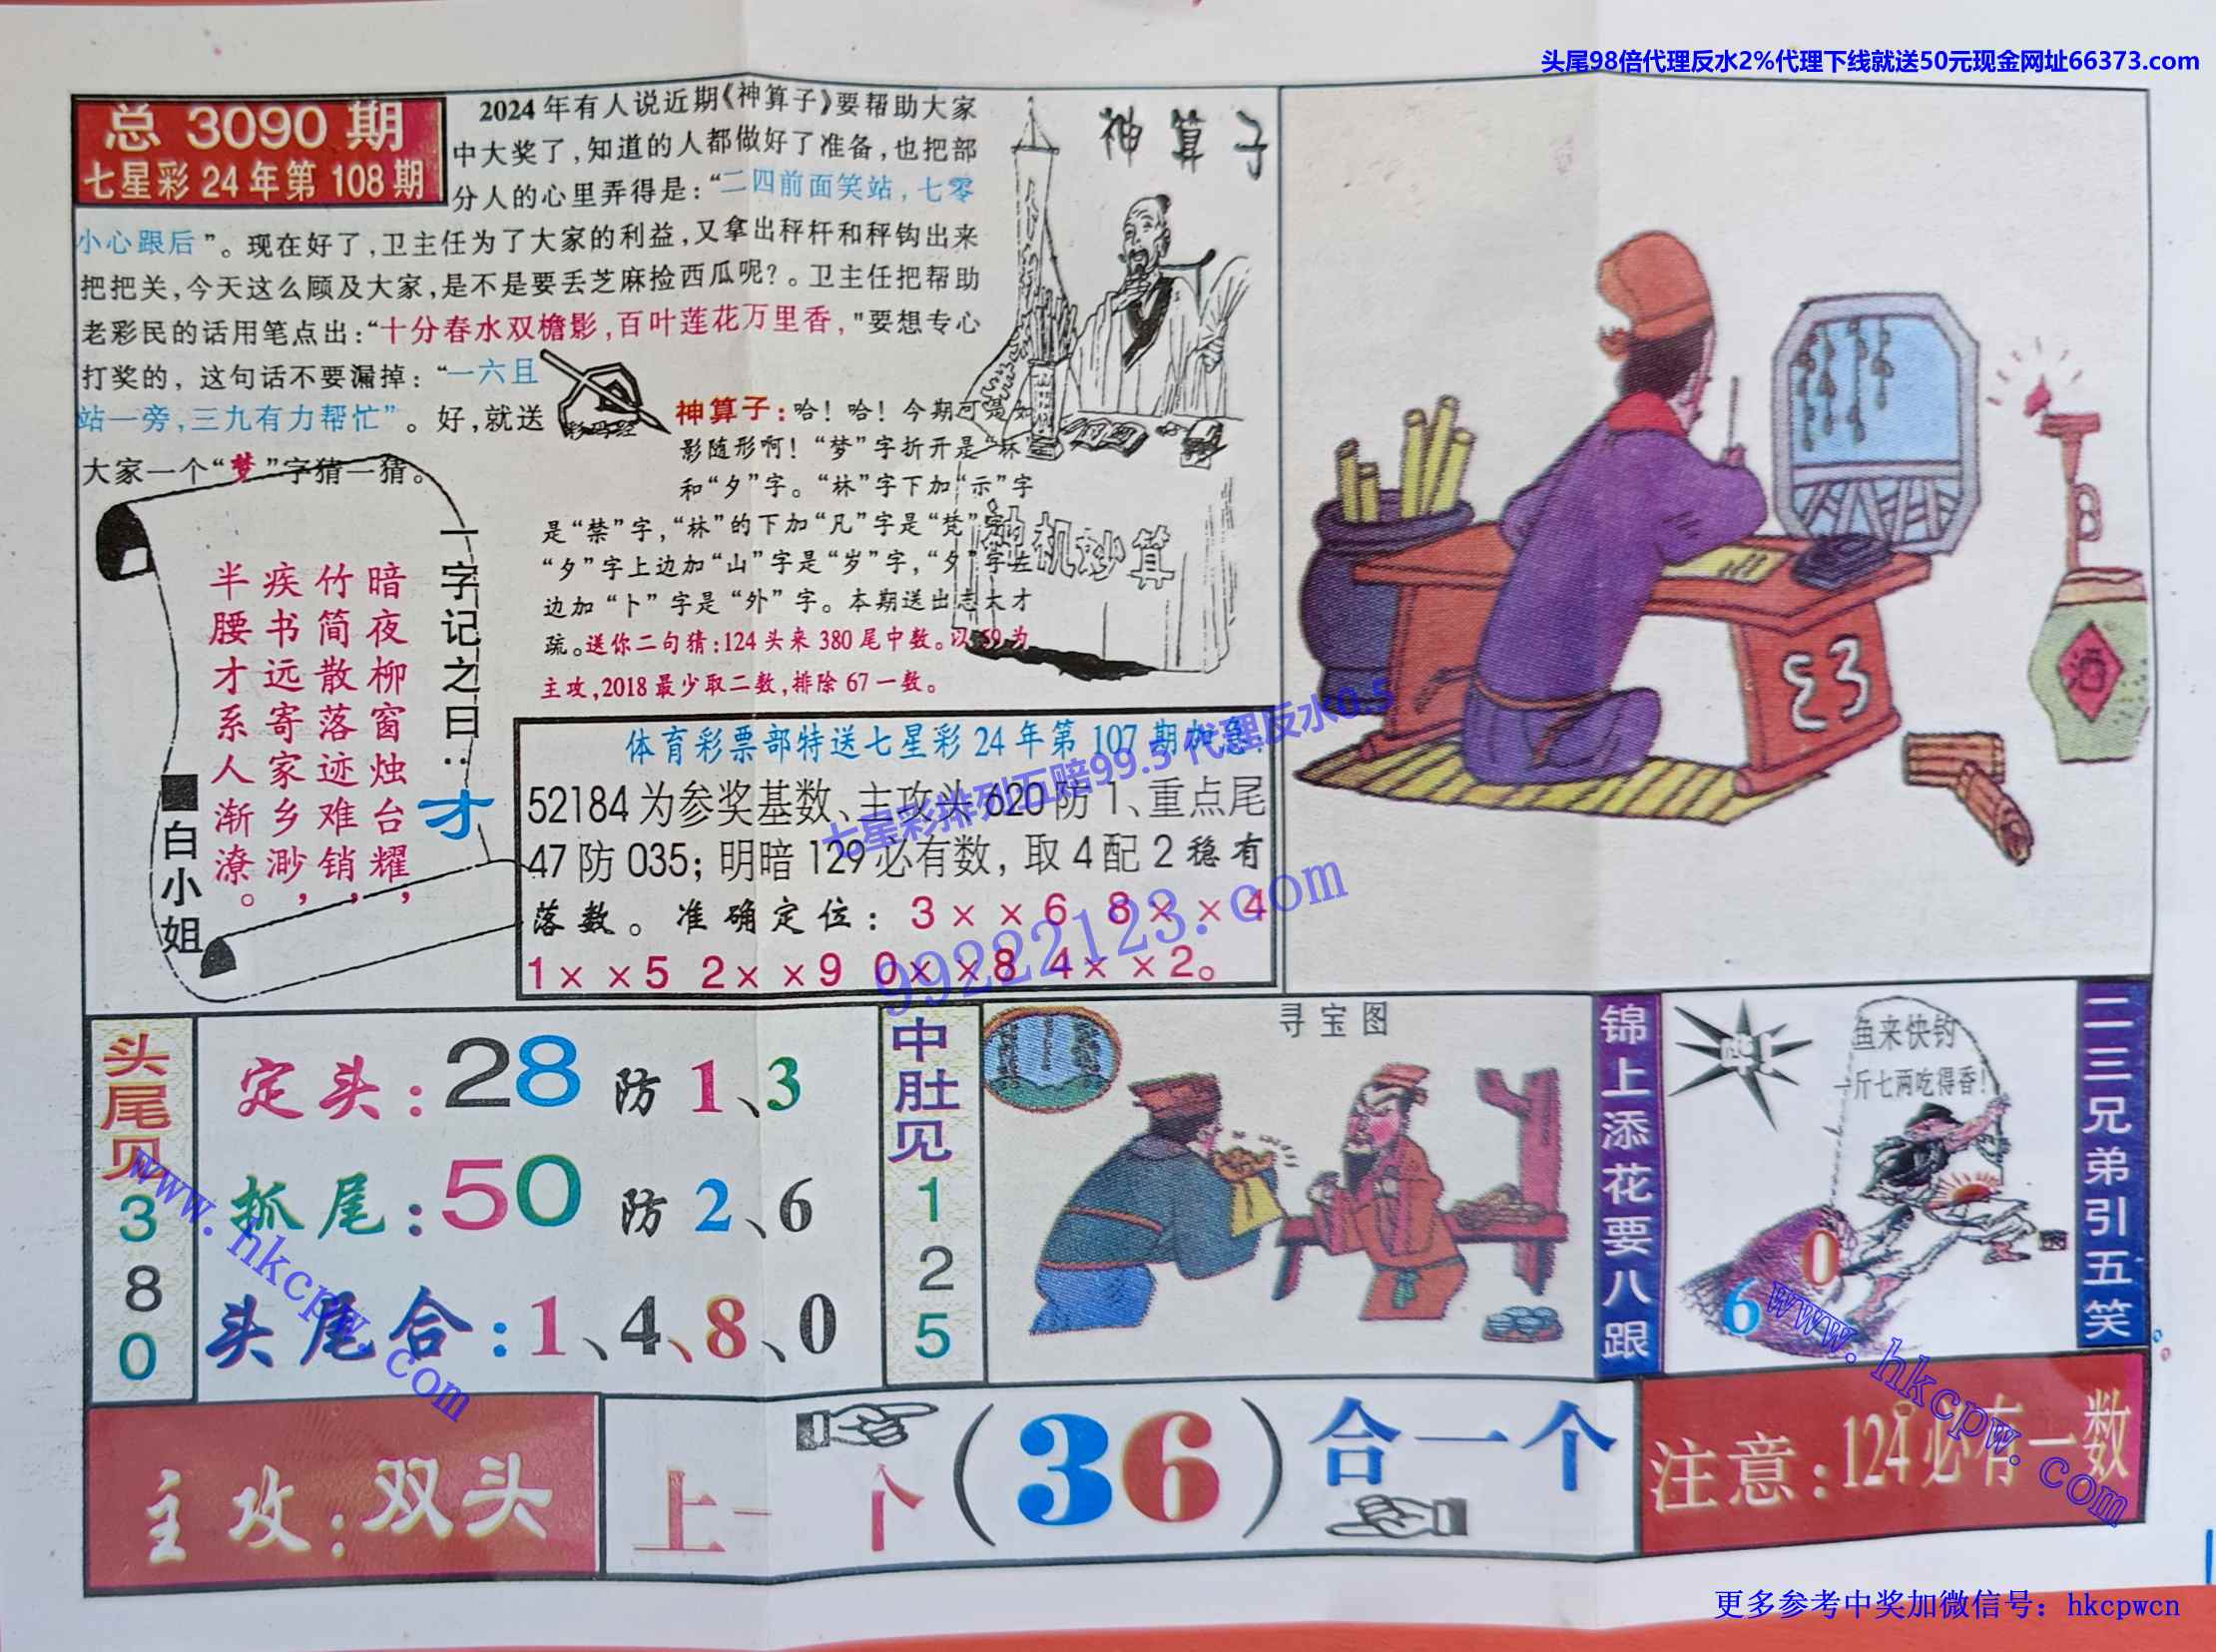 头尾98倍代理反水2%代理下线就送50元现金网址66373.com
总 3090 期
七星彩 24 年第 108 期
2024 年有人说近期《神算子》要帮助大家
中大奖了,知道的人都做好了准备,也把部
分人的心里弄得是:“二四前面笑站,七零
小心跟后”。现在好了,卫主任为了大家的利益,又拿出秤杆和秤钩出来
把把关,今天这么顾及大家,是不是要丢芝麻捡西瓜呢?。卫主任把帮助
老彩民的话用笔点出:“十分春水双檐影,百叶莲花万里香,”要想专心
打奖的,这句话不要漏掉:“一六且
站一旁,三九有力帮忙”。好,就送
大家一个“梦”字猜一猜。
神算子
神算子:哈!哈!今期可是如
影随形啊!“梦”字折开是“林”
和“夕”字。“林”字下加“示”字
是“禁”字,“林”的下加“凡”字是“梵”字,
“夕”字上边加“山”字是“岁”字,“夕”字左
边加“卜”字是“外”字。本期送出志大才
疏。送你二句猜:124 头来 380 尾中数。以 59 为
主攻,2018 最少取二数,排除 67 一数。
神机妙算
一字记之曰:才
暗夜柳窗烛台耀,
竹简散落迹难销,
疾书远寄家乡渺,
半腰才系人渐潦。
■白小姐
体育彩票部特送七星彩 24 年第 107 期加急:
52184 为参奖基数、主攻头 620 防 1、重点尾
47 防 035; 明暗 129 必有数, 取 4 配 2 稳有
落数。准确定位: 3××6 8××4
1××5 2××9 0××8 4××2。
七星彩排列五赔99.5 代理反水0.5
99222123.com
酒
头尾见380
定头:28 防 1、3
抓尾:50 防 2、6
头尾合:1、4、8、0
中肚见125
寻宝图
锦上添花要八跟
鱼来快钓
一斤七两吃得香!
0
6
二三兄弟引五笑
www.hkcpw.com
www.hkcpw.com
主攻:双头
上一个(36)合一个
注意:124必有一数
更多参考中奖加微信号: hkcpwcn